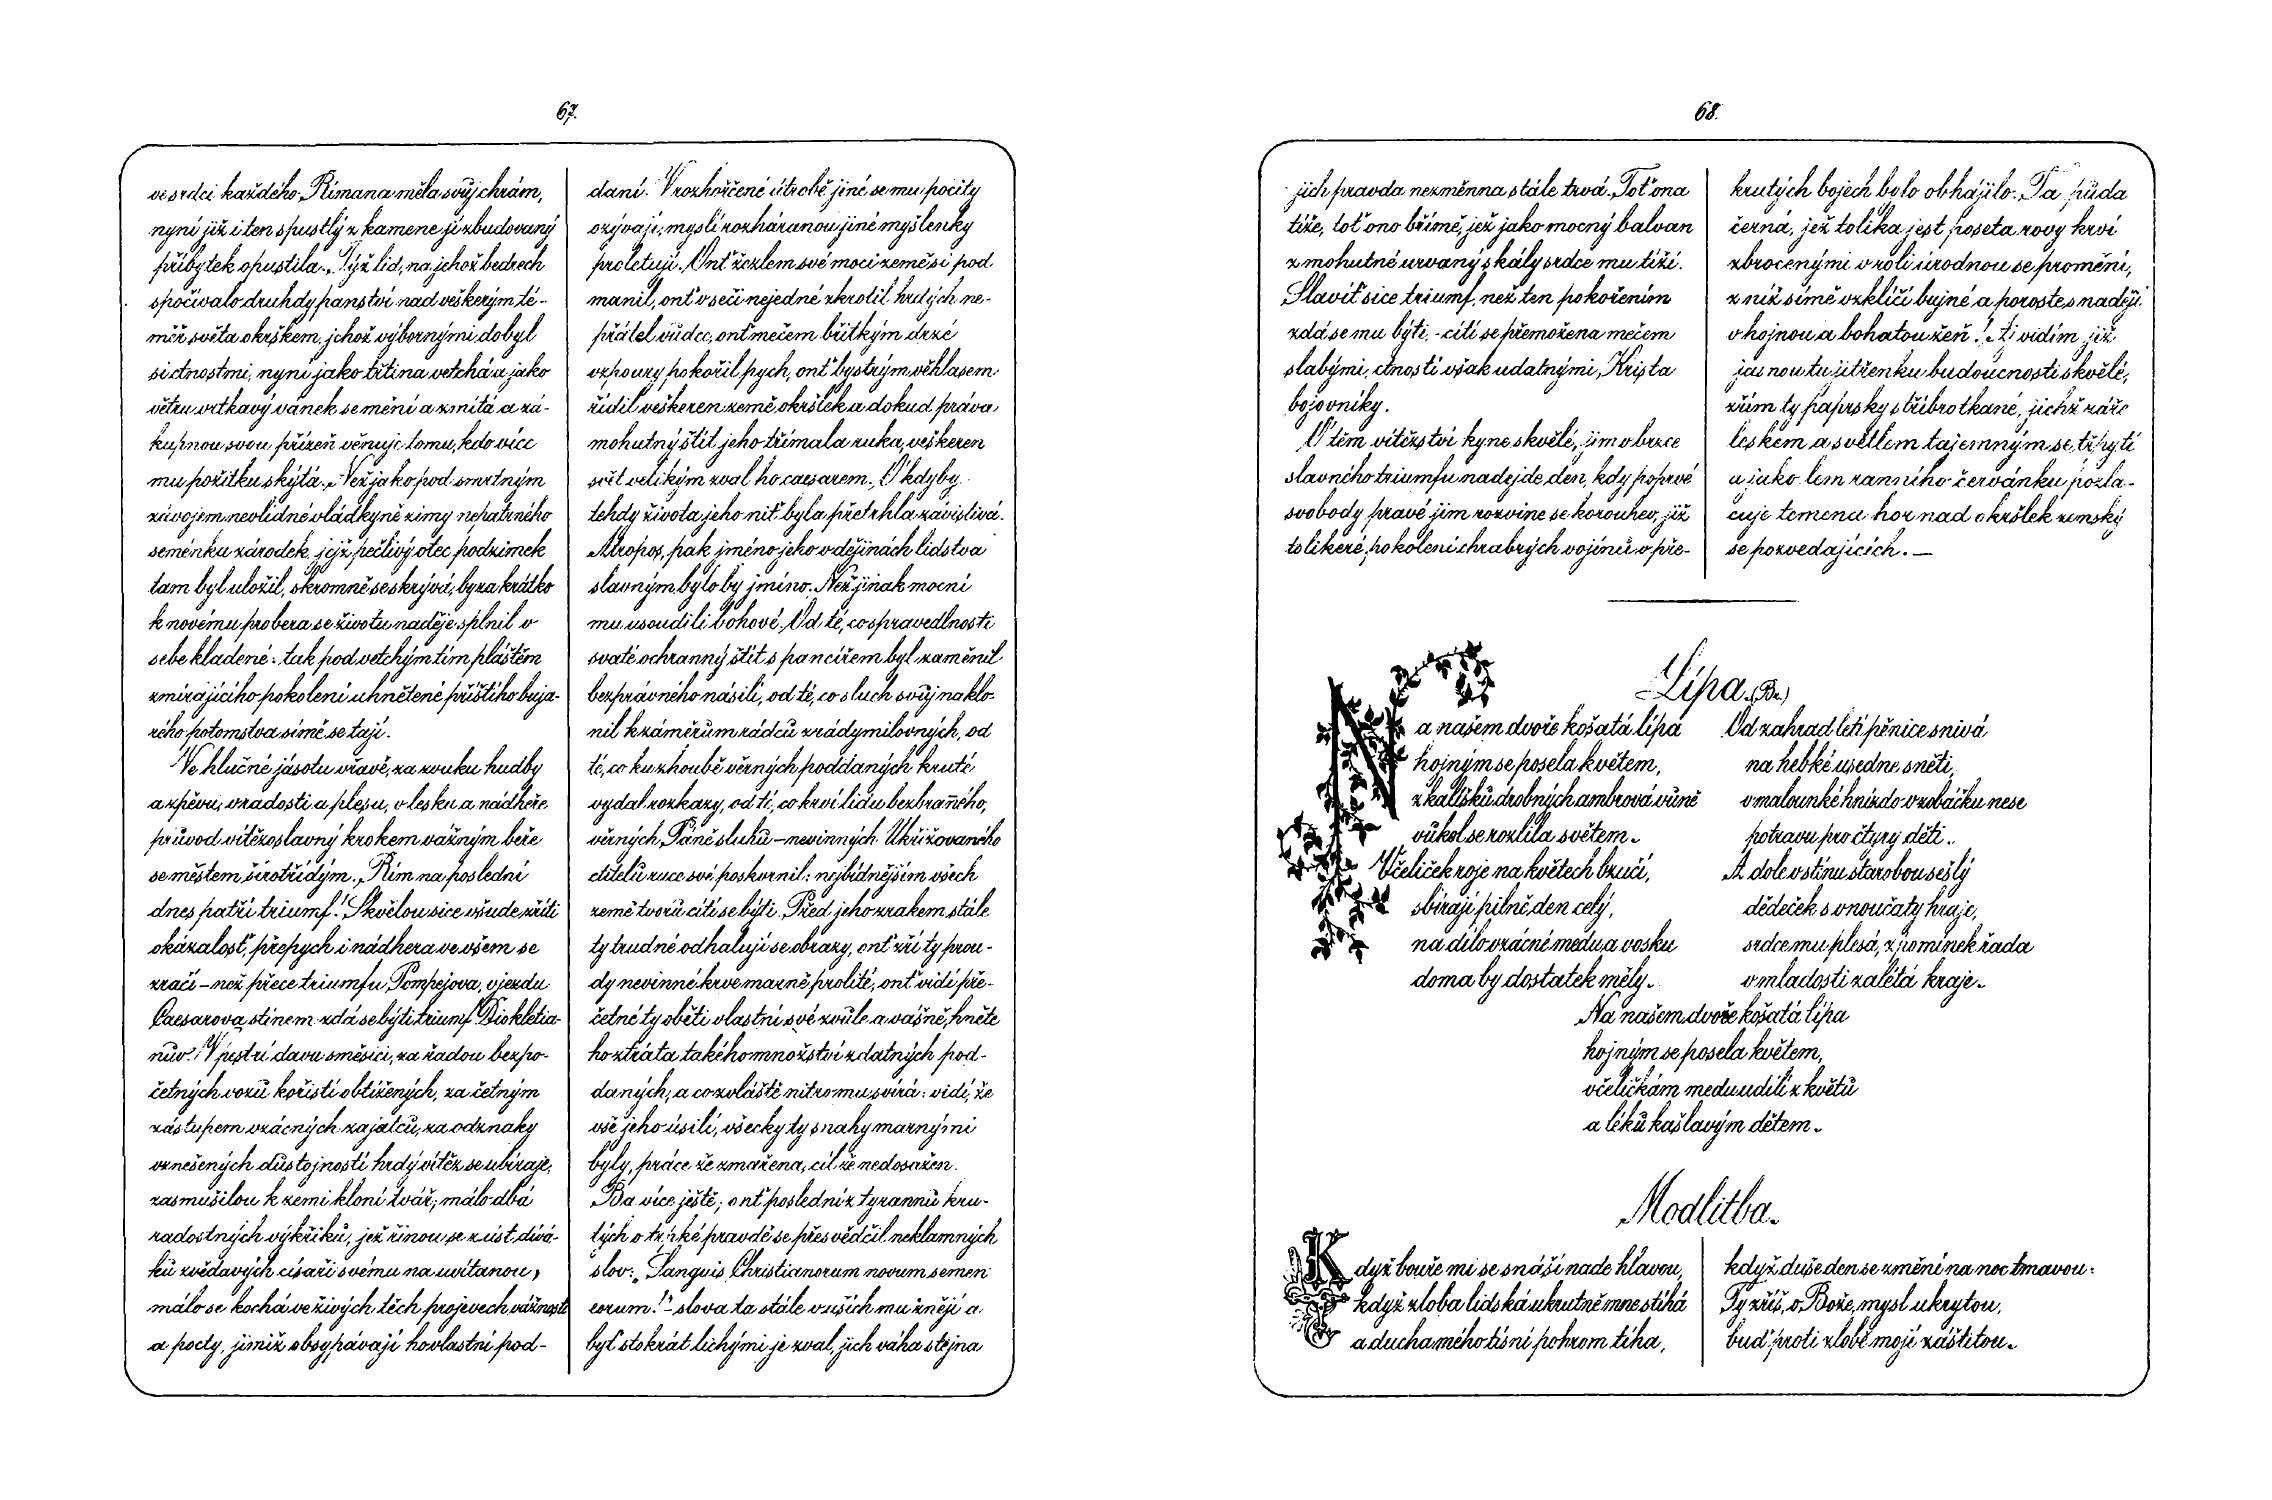 67.
ve srdci každého Římana měla svůj chrám,
nyní již i ten spustlý z kamene jí zbudovaný
příbytek opustila. Týž lid, na jehož bedrech
spočívalo druhdy panství nad veškerým té-
měř světa okrškem, jehož výbornými dobyl
si ctnostmi, nyní jako třtina vetchá a jako
větru vrtkavý vánek se mění a zmítá a zá-
kupnou svou přízeň věnuje tomu, kdo více
mu požitku skýtá. Než jako pod smrtným
závojem nevlídné vládkyně zimy nepatrného
seménka zárodek, jejž pečlivý otec podzimek
tam byl uložil, skromně se skrývá, by za krátko
k novému probera se životu naděje splnil v
sebe kladené: tak pod vetchým tím pláštěm
zmírajícího pokolení uhnětené příštího buja-
rého potomstva símě se tají.
Ve hlučné jásotu vřavě, za zvuku hudby
a zpěvu, v radosti a plesu, v lesku a nádheře
průvod vítězoslavný krokem vážným béře
se městem širotřídým. Řím na poslední
dnes patří triumf! Skvělou sice všude zříti
okázalosť, přepych i nádhera ve všem se
zračí – než přece triumfu Pompejova, vjezdu
Caesarova stínem zdá se býti triumf Diokletia-
nův. V pestrí davu směsici, za řadou bezpo-
četných vozů kořistí obtížených, za četným
zástupem vzácných zajatců, za odznaky
vznešených důstojností hrdý vítěz se ubíraje,
zasmušilou k zemi kloní tvář; málo dbá
radostných výkřiků, jež řinou se z úst divá-
ků zvědavých císaři svému na uvítanou,
málo se kochá ve živých těch projevech vážnosti
a pocty, jimiž obsypávají ho vlastní pod-
daní. V rozhořčené útrobě jiné se mu pocity
ozývají, myslí rozháranou jiné myšlenky
proletují. Onť žezlem své moci země si pod
manil, onť v seči nejedné zkrotil hrdých ne-
přátel vůdce, onť mečem břitkým drzé
vzpoury pokořil pych, onť bystrým věhlasem
řídil veškeren země okršlek a dokud práva
mohutný štít jeho třímala ruka, veškeren
svět velikým zval ho caesarem. Ó kdyby
tehdy života jeho niť byla přetrhla závistivá
Atropos, pak jméno jeho v dějinách lidstva
slavným bylo by jméno. Než jinak mocní
mu usoudili bohové. Od té, co spravedlnosti
svaté ochranný štít s pancířem byl zaměnil
bezprávného násilí, od té, co sluch svůj naklo-
nil k záměrům rádců zrádymilovných, od
té, co ku zhoubě věrných poddaných kruté
vydal rozkazy, od té, co krví lidu bezbranného,
věrných Páně sluhů – nevinných Ukřižovaného
ctitelů ruce své poskvrnil: nejbídnějším všech
země tvorů cítí se býti. Před jeho zrakem stále
ty trudné odhalují se obrazy, onť zří ty prou-
dy nevinné krve marně prolité, onť vidí pře-
četné ty oběti vlastní své zvůle a vášně, hněte
ho ztráta takého množství zdatných pod-
daných, a co zvláště nitro mu svírá: vidí, že
vše jeho úsilí, všecky ty snahy marnými
byly, práce že zmařena, cíl že nedosažen.
Ba více ještě; onť poslední z tyrannů kru-
tých o trpké pravdě se přesvědčil neklamných
slov: „Sanguis Christianorum novum semen
eorum!" – slova ta stále v uších mu znějí a
byť stokrát lichými je zval, jich váha stejna
68.
jich pravda nezměnna stále trvá. Toť ona
tíže, toť ono břímě, jež jako mocný balvan
z mohutné urvaný skály srdce mu tíží.
Slavíť sice triumf, než ten pokořením
zdá se mu býti, - cítí se přemožena mečem
slabými, ctností však udatnými, Krista
bojovníky.
Ó těm vítězství kyne skvělé, jim v brzce
slavného triumfu nadejde den, kdy poprvé
svobody pravé jim rozvine se korouhev, již
tolikeré pokolení chrabrých vojínů v pře-
krutých bojech bylo obhájilo. Ta půda
černá, jež tolika jest poseta rovy krví
zbrocenými v roli úrodnou se promění,
z níž símě vzklíčí bujné a poroste s nadějí
v hojnou a bohatou žeň! Aj vidím již
jasnou tu jitřenku budoucnosti skvělé,
zřím ty paprsky stříbrotkané, jichž záře
leskem a světlem tajemným se třpytí
a jako lem ranního červánku pozla-
cuje temena hor nad okršlek zemský
se pozvedajících. —
Lípa. (Br.)
Na našem dvoře košatá lípa
hojným se posela květem,
z kalíšků drobných ambrová vůně
vůkol se rozlila světem.
Včeliček roje na květech bzučí,
sbírají pilně den celý,
na dílo vzácné medu a vosku
doma by dostatek měly.
Od zahrad letí pěnice snivá
na hebké usedne sněti,
v malounké hnízdo v zobáčku nese
potravu pro čtyry děti.
A dole v stínu starobou sešlý
dědeček s vnoučaty hraje,
srdce mu plesá, vzpomínek řada
v mladosti zalétá kraje.
Na našem dvoře košatá lípa
hojným se posela květem,
včeličkám medu udílí z květů
a léků kašlavým dětem.
Modlitba.
Když bouře mi se snáší nade hlavou,
když zloba lidská ukrutně mne stíhá
a ducha mého tísní pohrom tíha,
když duše den se změní na noc tmavou:
Ty zříš, o Bože, mysl ukrytou,
buď proti zlobě mojí záštitou.